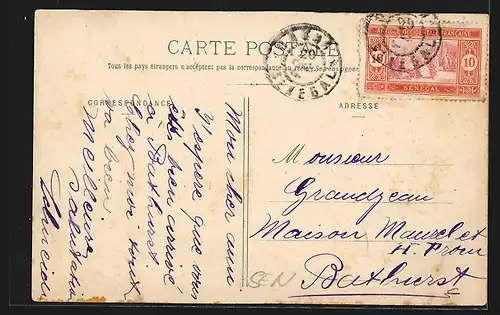 CARTE POSTALE
Tous les pays étrangers n'acceptent pas la correspondance au recto. Se renseigner
CORRESPONDANCE
ADRESSE
SENEGAL
SENEGAL
AFRIQUE OCCIDENTALE FRANÇAISE
10
10
SENEGAL
Mon cher ami
J'espère que vous
êtes bien arrivé
à Bathurst.
Chez moi tout
va bien.
Meilleures
Salutations
Monsieur
Grandjean
Maison Maurel et
H. Prom
Bathurst
SEN